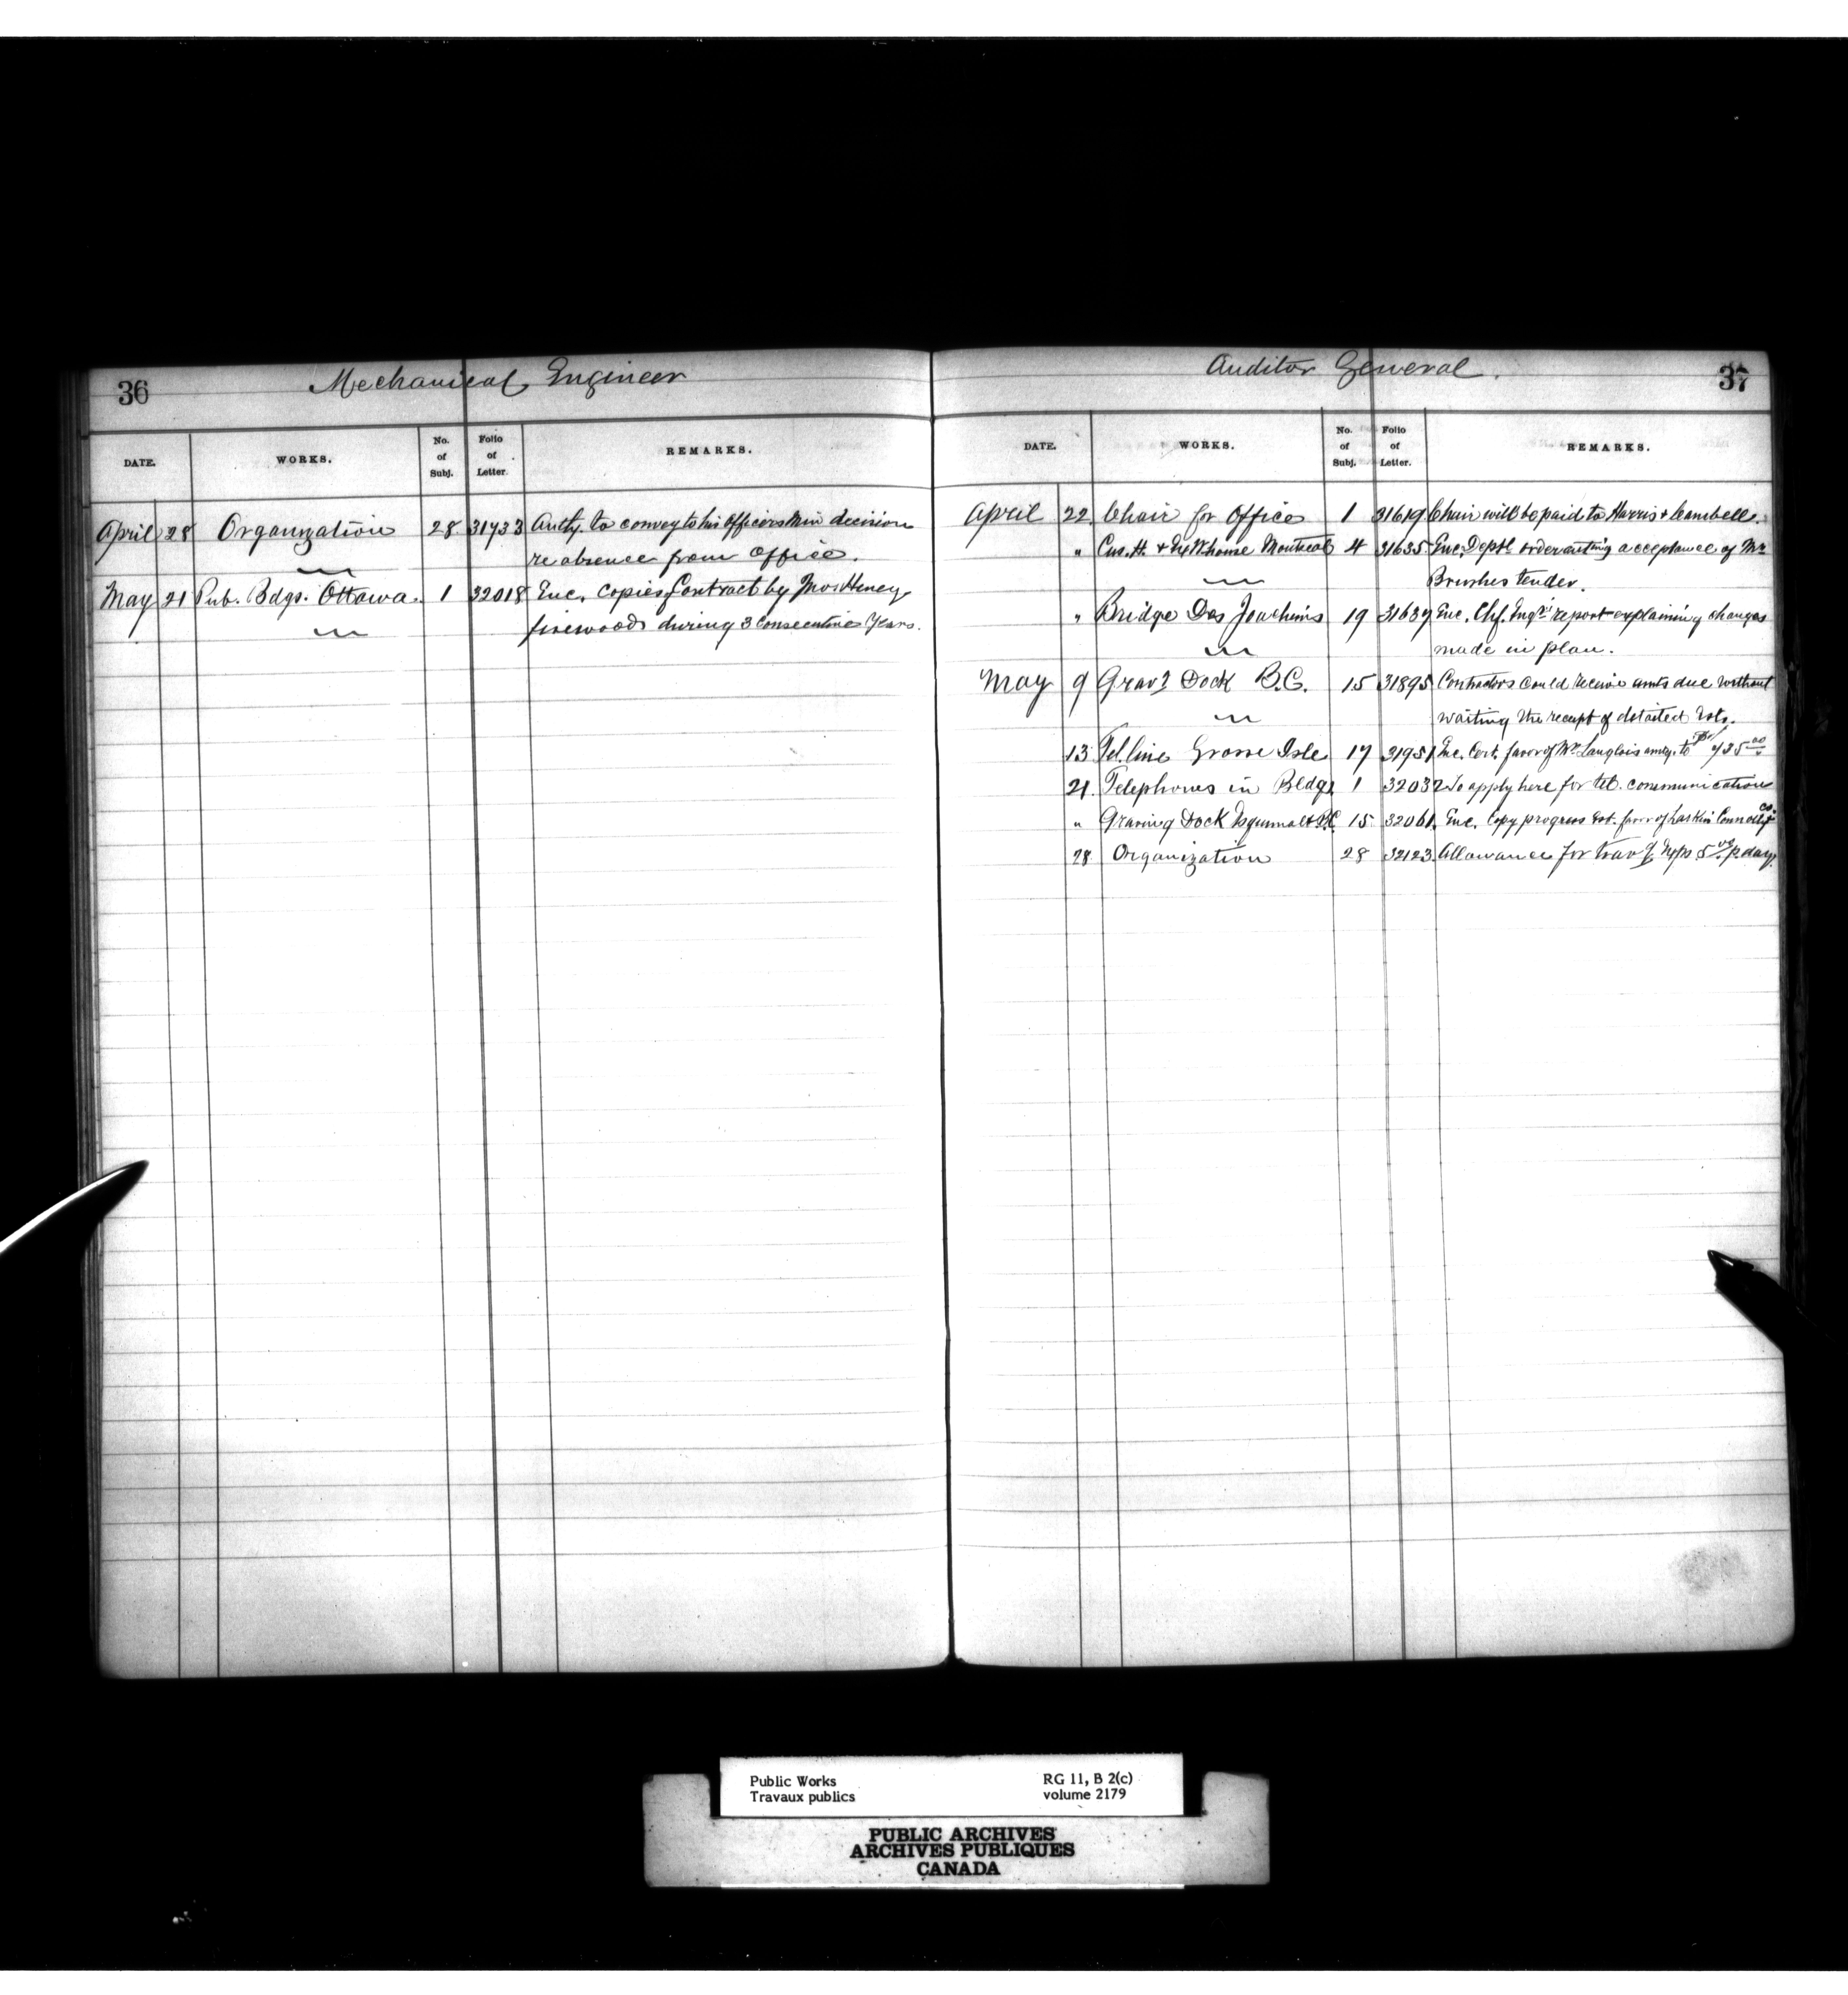 36 Mechanical Engineer
DATE. WORKS. No. of Subj. Folio of Letter. REMARKS.
April 28 Organization 28 31733 Auth. to convey to his officers Min decision
re absence from office.
May 21 Pub. Bdgs. Ottawa. 1 32018 Enc. copies Contract by Heney
firewood during 3 consecutive years.
Auditor General. 37
DATE. WORKS. No. of Subj. Folio of Letter. REMARKS.
April 22 Chair for Office 1 31619 Chair will be paid to Harris & Cambell.
" Cus. H. & Ex. Whouse Montreal 4 31635 Enc. Deptl order acceptance of Mr
Brushes tender.
" Bridge Des Joachims 19 31637 Enc. Chf. Engrs report explaining changes
made in plan.
May 9 Gravg Dock B.C. 15 31895 Contractors could receive amts due without
waiting the receipt of detailed Ests.
13 Tel. line Grosse Isle 17 31951 Enc. Cert. favor of Mr Langlois amtg. to 735 00
21. Telephones in Bldgs 1 32032 To apply here for tel. communication
" Graving Dock Esquimalt B.C 15 32061. Enc. Copy progress Est. favor of Larkin Connolly Co.
28 Organization 28 32123. Allowance for travg Exps 5 00 p. day.
Public Works RG 11, B 2(c)
Travaux publics volume 2179
PUBLIC ARCHIVES
ARCHIVES PUBLIQUES
CANADA